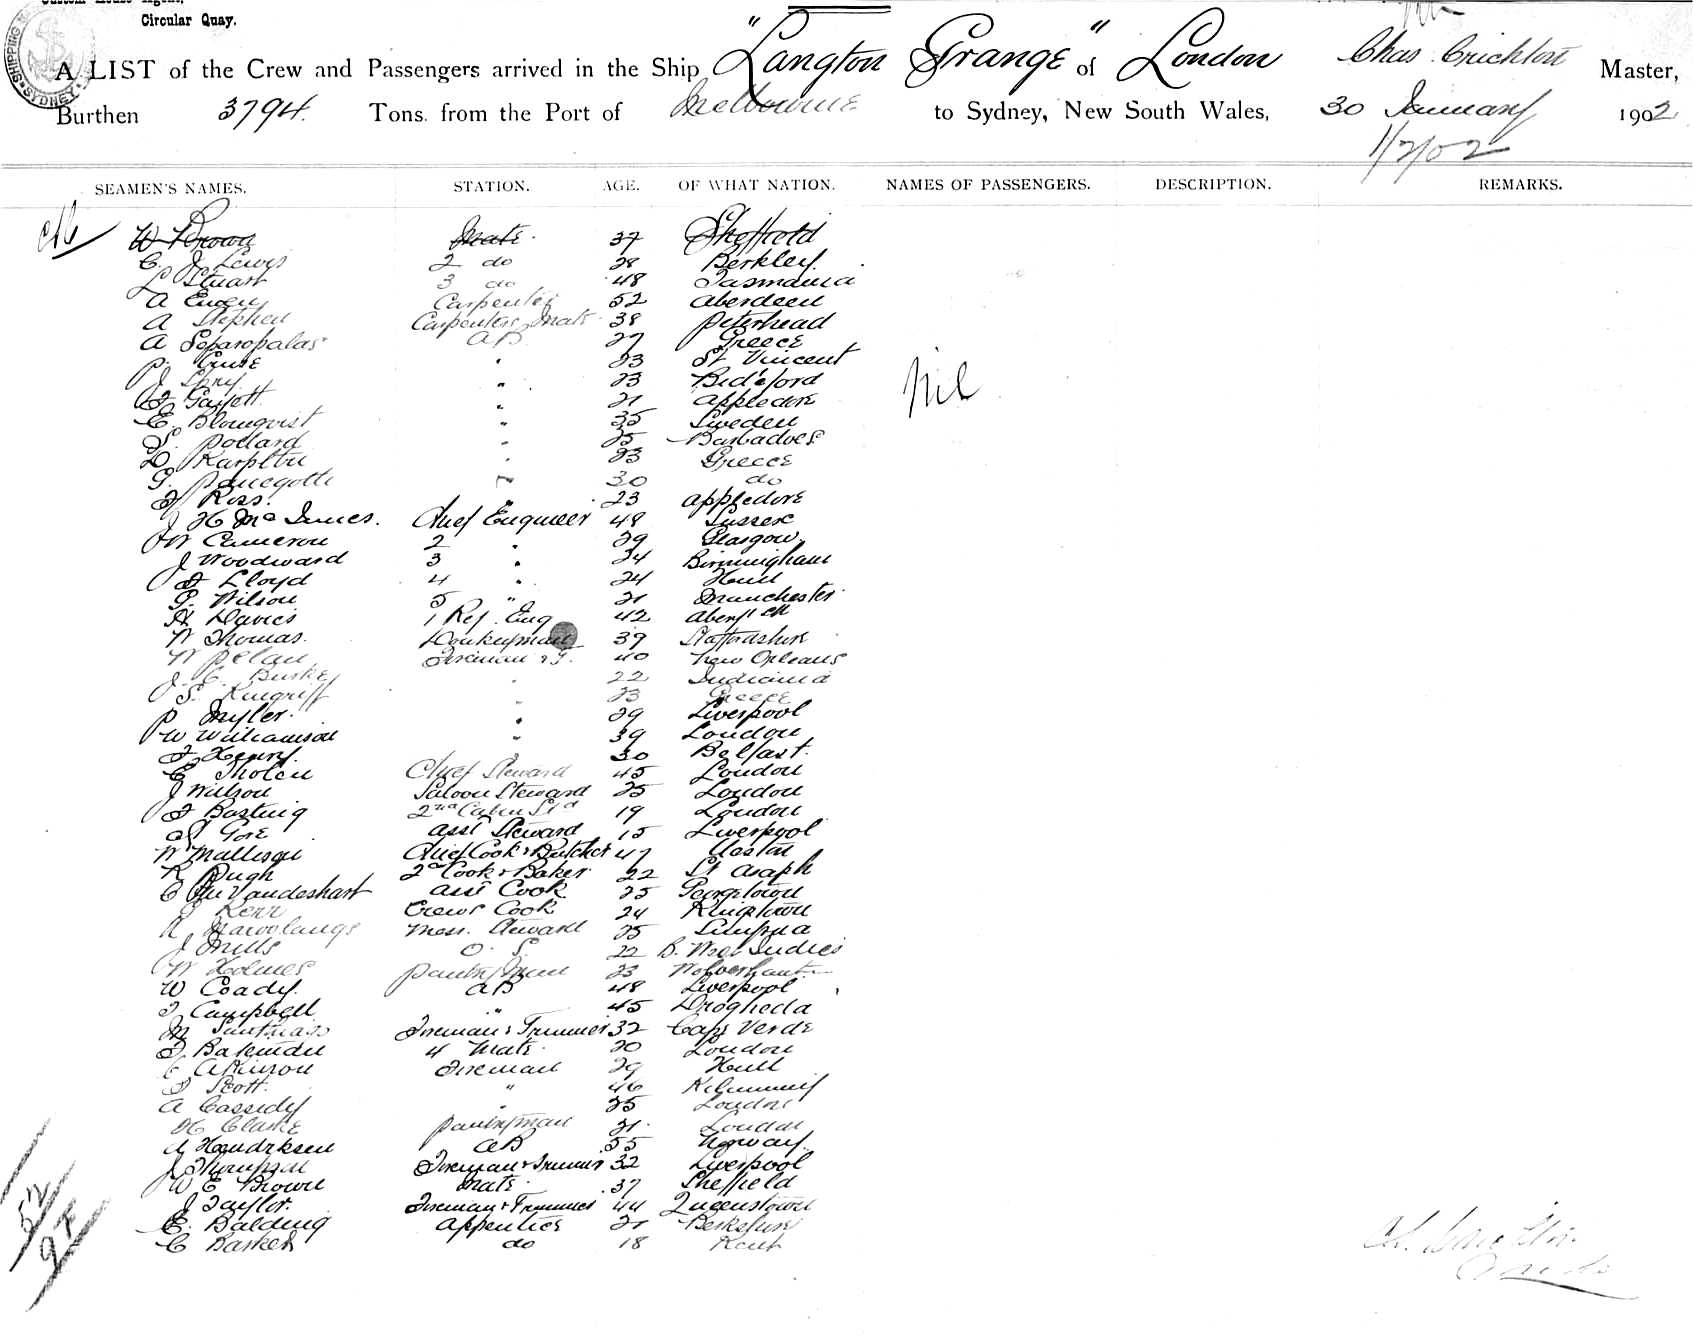 Custom House Agent,
Circular Quay.
SHIPPING M
SYDNEY
A LIST of the Crew and Passengers arrived in the Ship "Langton Grange" of London Chas Crichton Master,
Burthen 3794 Tons from the Port of Melbourne to Sydney, New South Wales, 30 January 1902
1/2/02
SEAMEN'S NAMES. STATION. AGE. OF WHAT NATION. NAMES OF PASSENGERS. DESCRIPTION. REMARKS.
W Brown Mate 37 Sheffield
C J Lewis 2 do 28 Berkley
L Stuart 3 do 48 Tasmania
A Ewen Carpenter 52 Aberdeen
A Stephen Carpenters Mate 38 Peterhead
A Separopalas AB 27 Greece
P. Cruse " 23 St Vincent
J " 23 Bideford
Nil
" 21 Appledore
E. Blomqvist " 35 Sweden
S. Pollard " 25 Barbadoes
D " 23 Greece
G. " 30 do
Ross " 23 Appledore
J H Mc Innes. Chief Engineer 48 Sussex
W Cameron 2 " 29 Glasgow
J Woodward 3 " 24 Birmingham
Lloyd 4 " 24 Hull
P. Wilson 5 " 21 Manchester
H Davies 1 Ref. Eng 42
W Thomas. Donkeyman 39 Staffordshire
W Pelan Fireman & T. 40 New Orleans
J. C. " 22 Indiana
S. " 23 Greece
P Myler. " 29 Liverpool
W Williamson " 39 London
Henry. 30 Belfast.
E Tholen Chief Steward 45 London
J Wilson Saloon Steward 25 London
2nd Cabin Std 19 London
Gore Asst Steward 15 Liverpool
W Mallison Chief Cook & Butcher 47
R Pugh 2nd Cook & Baker 22 St Asaph
C Vandeshart Asst Cook 25 Georgetown
Kerr Crews Cook 24 Kingstown
Mess. Steward 25
J Mills O. S. 22 B. West Indies
W Holmes Pantryman 23
W Coady. AB 48 Liverpool
Campbell " 45 Drogheda
M Fireman & Trimmer 32 Cape Verde
Bateman 4 Mate 20 London
Fireman 29 Hull
Scott. " 46
A Cassidy " 25 London
H Clarke Pantryman 21 London
A Hendriksen AB 55 Norway.
J Thompson Fireman & Trimmer 32 Liverpool
W E Brown Mate 37 Sheffield
J Taylor. Fireman & Trimmer 44 Queenstown
E. Balding Apprentice 21 Berkshire
C do 18 Kent